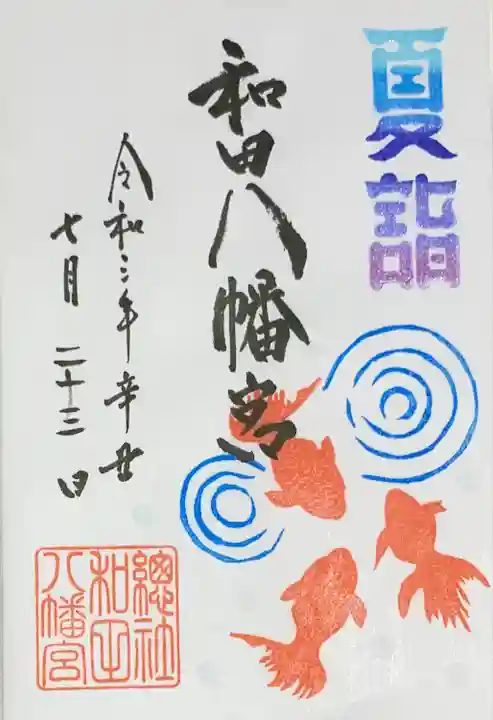 夏詣
和田八幡宮
令和三年辛丑
七月二十三日
總社
和田
八幡宮